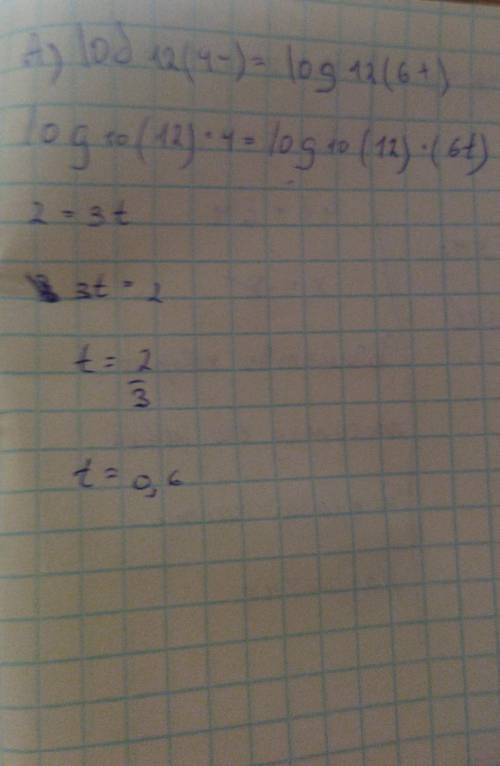 A) log 12(4-) = log 12(6+)
log 10 (12) · 4 = log 10 (12) · (6t)
2 = 3t
3t = 2
t = 2/3
t = 0,6